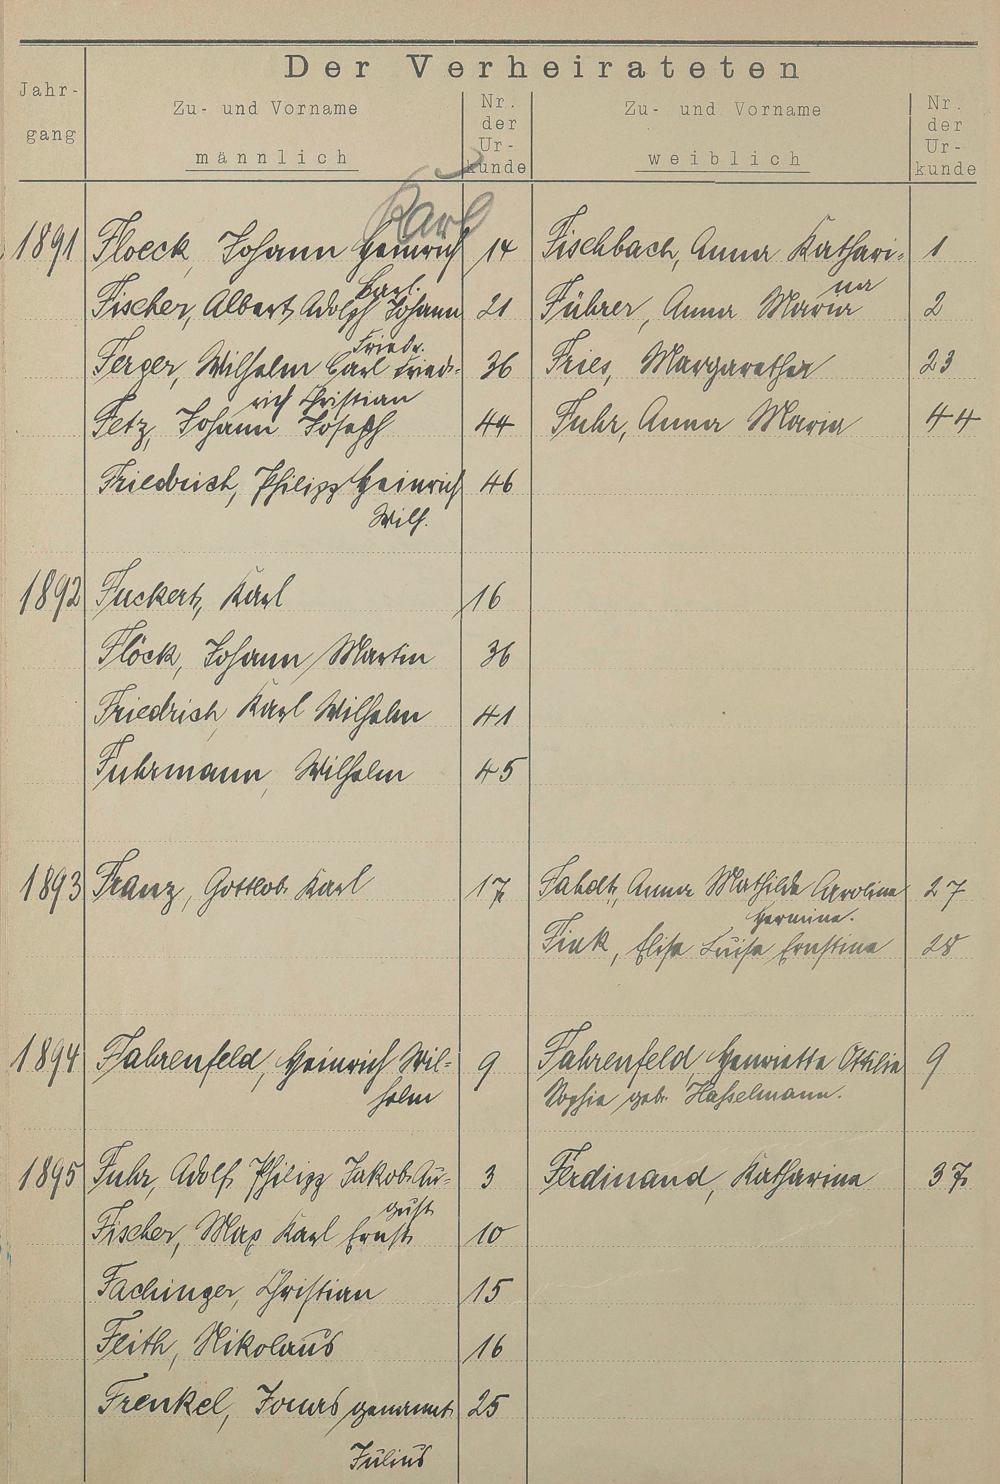 Der Verheirateten
Jahr-
gang
Zu- und Vorname
männlich
Nr.
der
Ur-
kunde
Zu- und Vorname
weiblich
Nr.
der
Ur-
kunde
Karl
1891 Floeck, Johann Heinrich 14 Fischbach, Anna Kathari-
Carl. na
Fischer, Albert Adolph Johann 21 Führer, Anna Maria 2
Friedr.
Ferger, Wilhelm Carl Fried- 36 Fries, Margarethe 23
rich Christian
Fetz, Johann Joseph 44 Fuhr, Anna Maria 44
Friedrich, Philipp Heinrich 46
Wilh.
1892 Fuckert, Karl 16
Flöck, Johann Martin 36
Friedrich, Karl Wilhelm 41
Fuhrmann, Wilhelm 45
1893 Franz, Gottlob Karl 17 Fahdt, Anna Mathilde Caroline 27
Hermine.
Fink, Elise Luise Ernstine 28
1894 Fahrenfeld, Heinrich Wil- 9 Fahrenfeld, Henriette Ottilie 9
helm Sophie geb. Hasselmann.
1895 Fuhr, Adolf Philipp Jakob Au- 3 Ferdinand, Katharina 37
gust
Fischer, Max Karl Ernst 10
Fachinger, Christian 15
Feith, Nikolaus 16
Frenkel, genannt 25
Julius